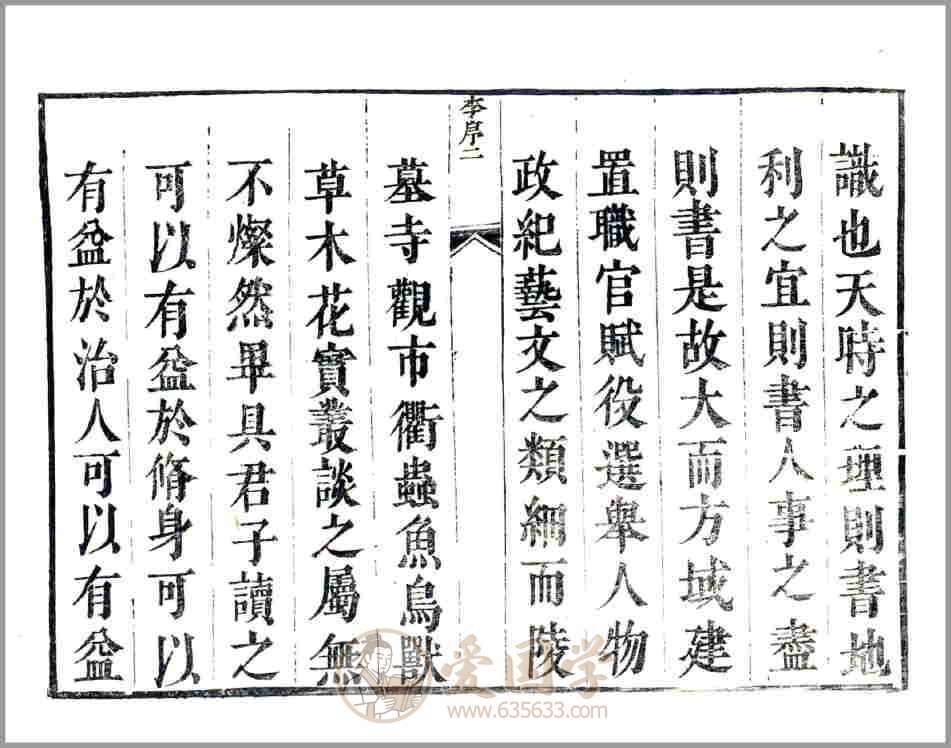 識也天時之理則書地
利之宜則書人事之盡
則書是故大而方域建
置職官賦役選舉人物
政紀藝文之類細而陵
李序二
墓寺觀市衢蟲魚鳥獸
草木花實叢談之屬無
不燦然畢具君子讀之
可以有益於脩身可以
有益於治人可以有益
爱国学
www.635633.com